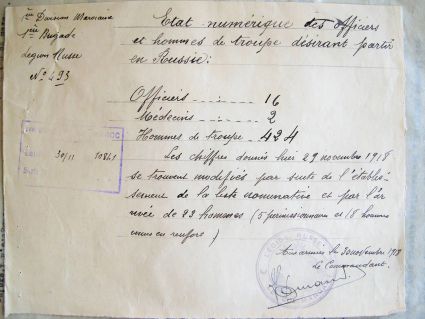 1ère Division Marocaine
1ère Brigade
Légion Russe
No 493
Etat numérique des officiers
et hommes de troupe désirant partir
en Russie:
Officiers . . . . . 16
Médecins . . . . . 2
Hommes de troupe. 424
Les chiffres donnés hier 29 novembre 1918
se trouvent modifiés par suite de l'établis-
sement de la liste nominative et par l'ar-
rivée de 23 hommes (5 permissionnaires et 18 hommes
venus en renfort)
30/11 10841
Aux armées le 30 novembre 1918
Le Commandant.